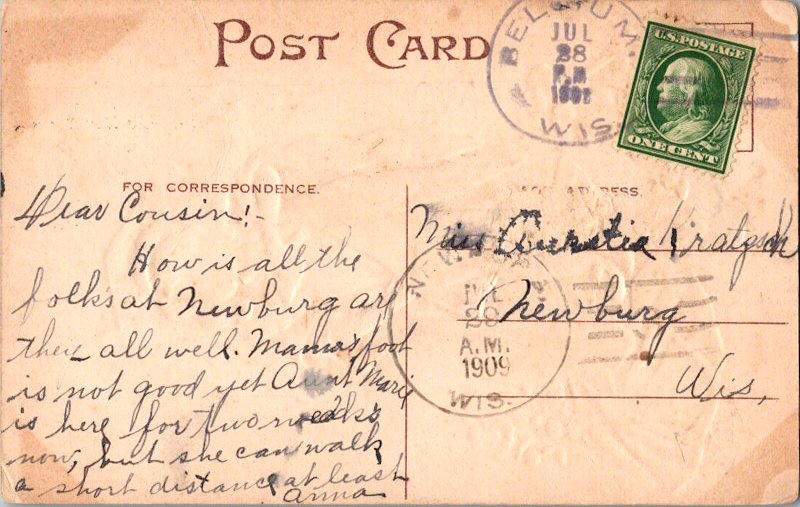 POST CARD
BELGIUM.
JUL
28
P.M
190
WIS.
U.S. POSTAGE
ONE CENT
FOR CORRESPONDENCE.
Dear Cousin!-
How is all the
folks at Newburg ar
they all well. Mama's foot
is not good yet Aunt Marie
is here for two weeks
now, but she can walk
a short distance at least
Anna
Miss
Newburg
Wis,
JUL
28
A.M.
1909
WIS.